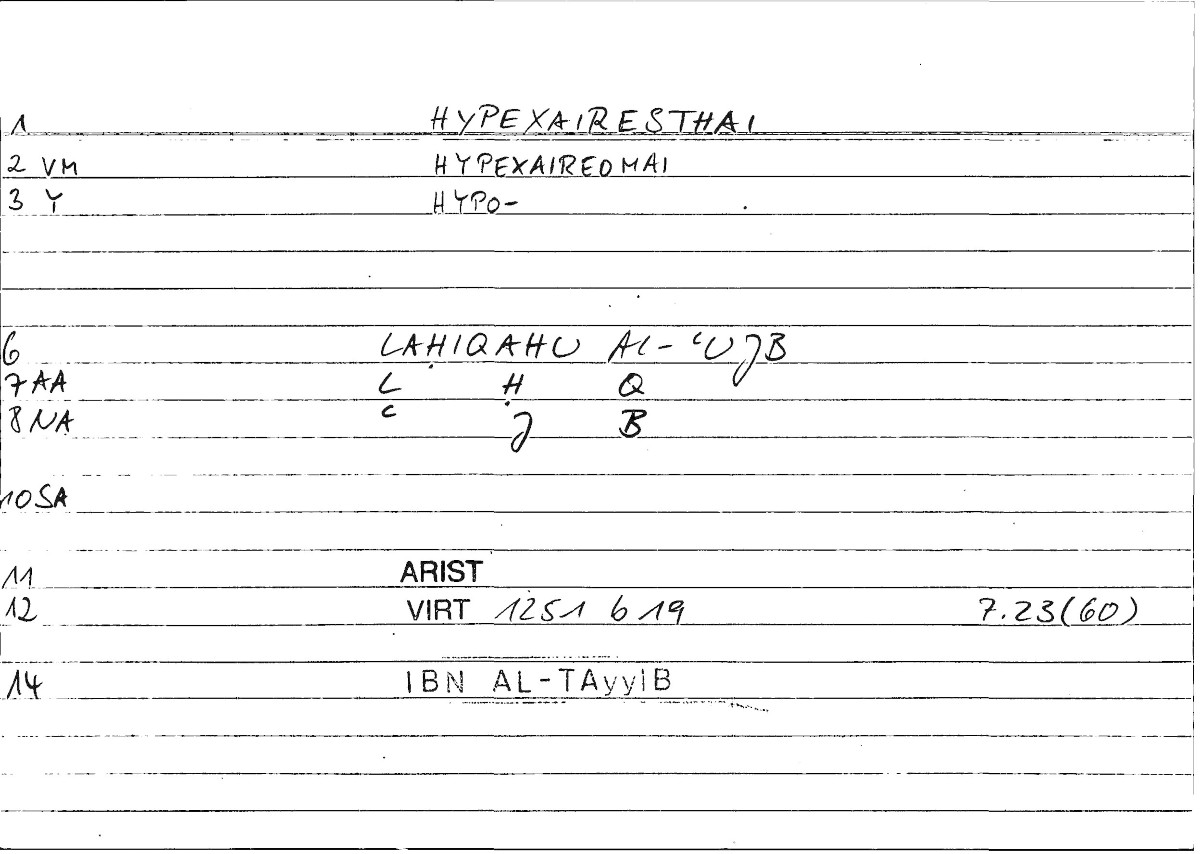 1 HYPEXAIRESTHAI
2 VM HYPEXAIREOMAI
3 Y HYPO-
6 LAḤIQAHU AL-ʿUJB
7 AA L Ḥ Q
8 NA ʿ J B
10 SA
11 ARIST
12 VIRT 1251 b 19 7.23(60)
14 IBN AL-TAyyIB